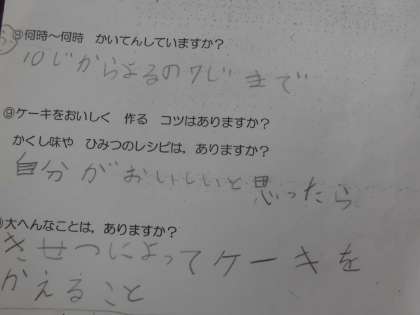 ⑧何時～何時 かいてんしていますか?
10じからよるの7じまで
⑨ケーキをおいしく 作る コツはありますか?
かくし味や ひみつのレシピは,ありますか?
自分がおいしいと思ったら
大へんなことは,ありますか?
きせつによってケーキを
かえること